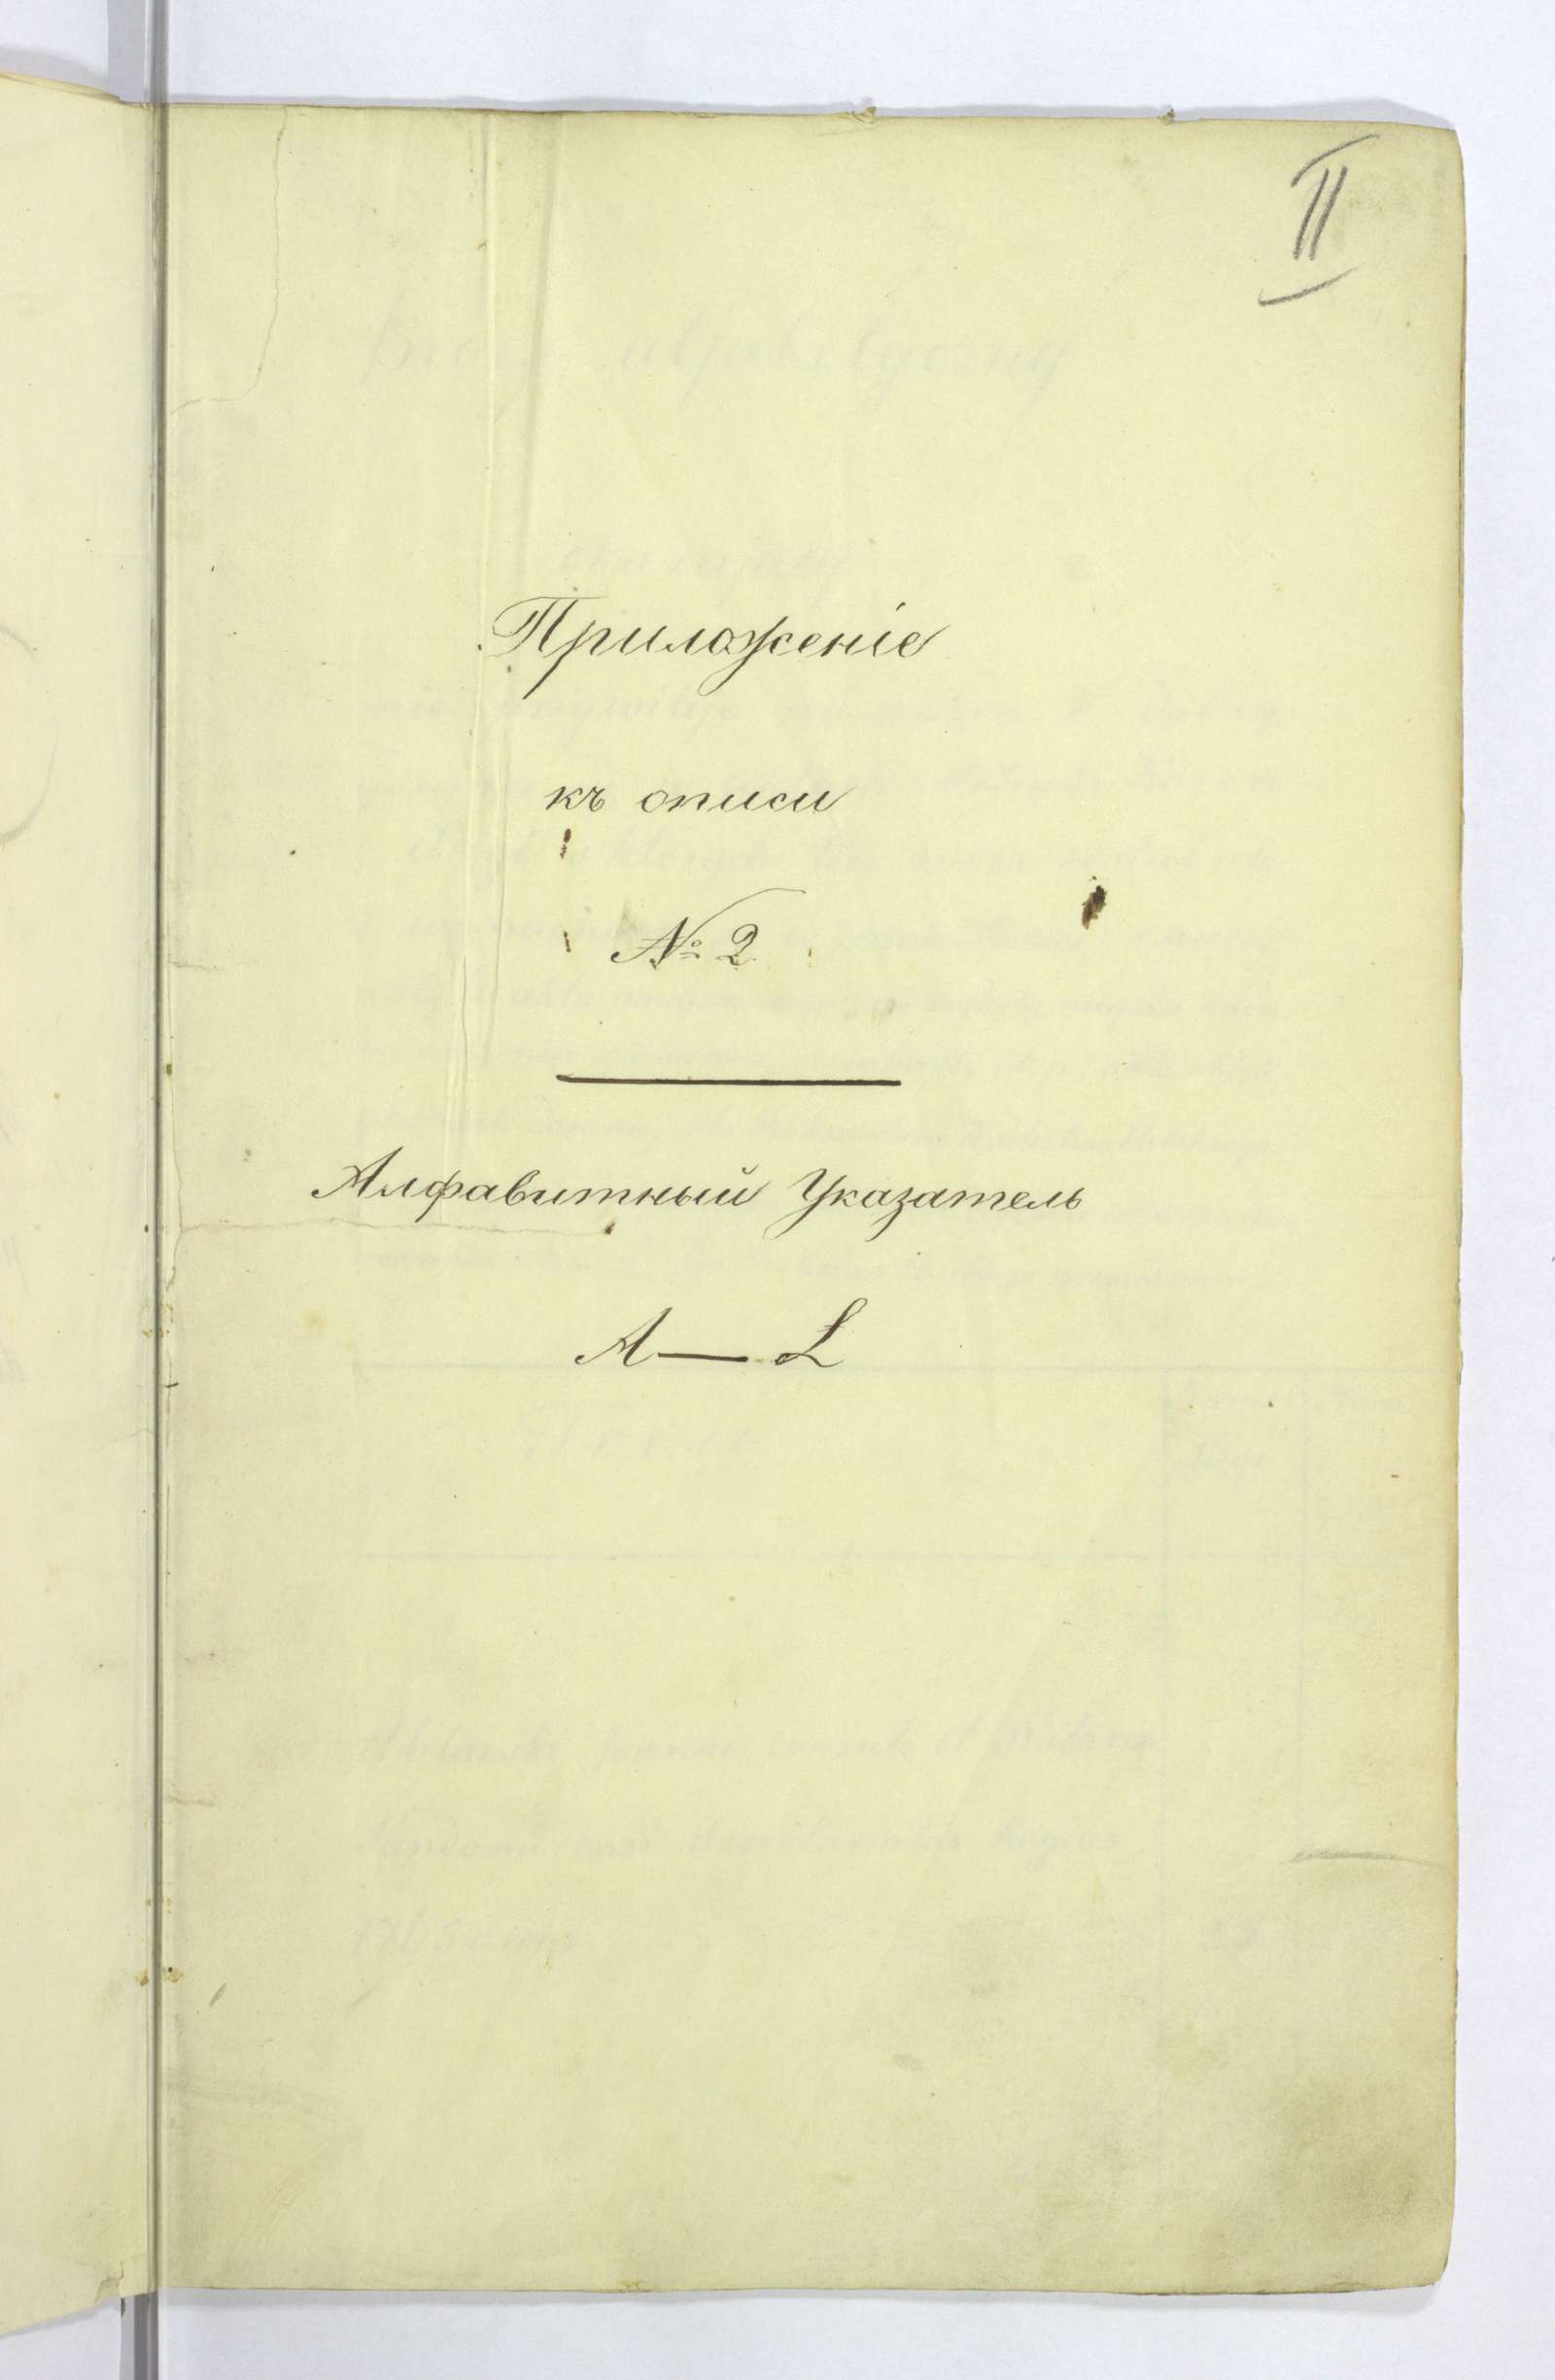 II
Приложеніе
къ описи
№ 2
Алфавитный Указатель
A — Ł